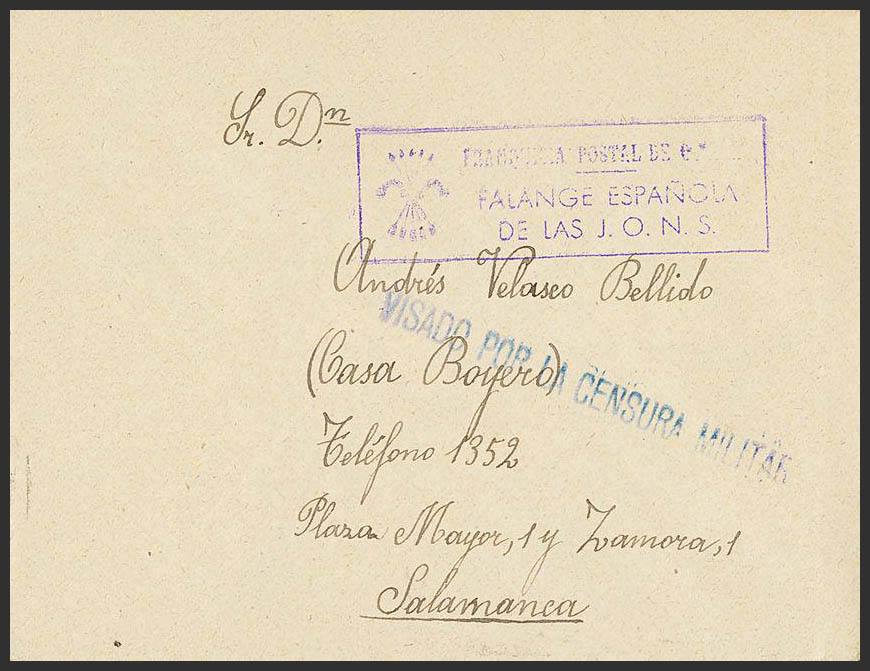 Sr. Dn.
FRANQUICIA POSTAL DE
FALANGE ESPAÑOLA
DE LAS J. O. N. S.
Andrés Velasco Bellido
VISADO POR LA CENSURA MILITAR
(Casa Boyero)
Teléfono 1352
Plaza Mayor, 1 y Zamora, 1
Salamanca